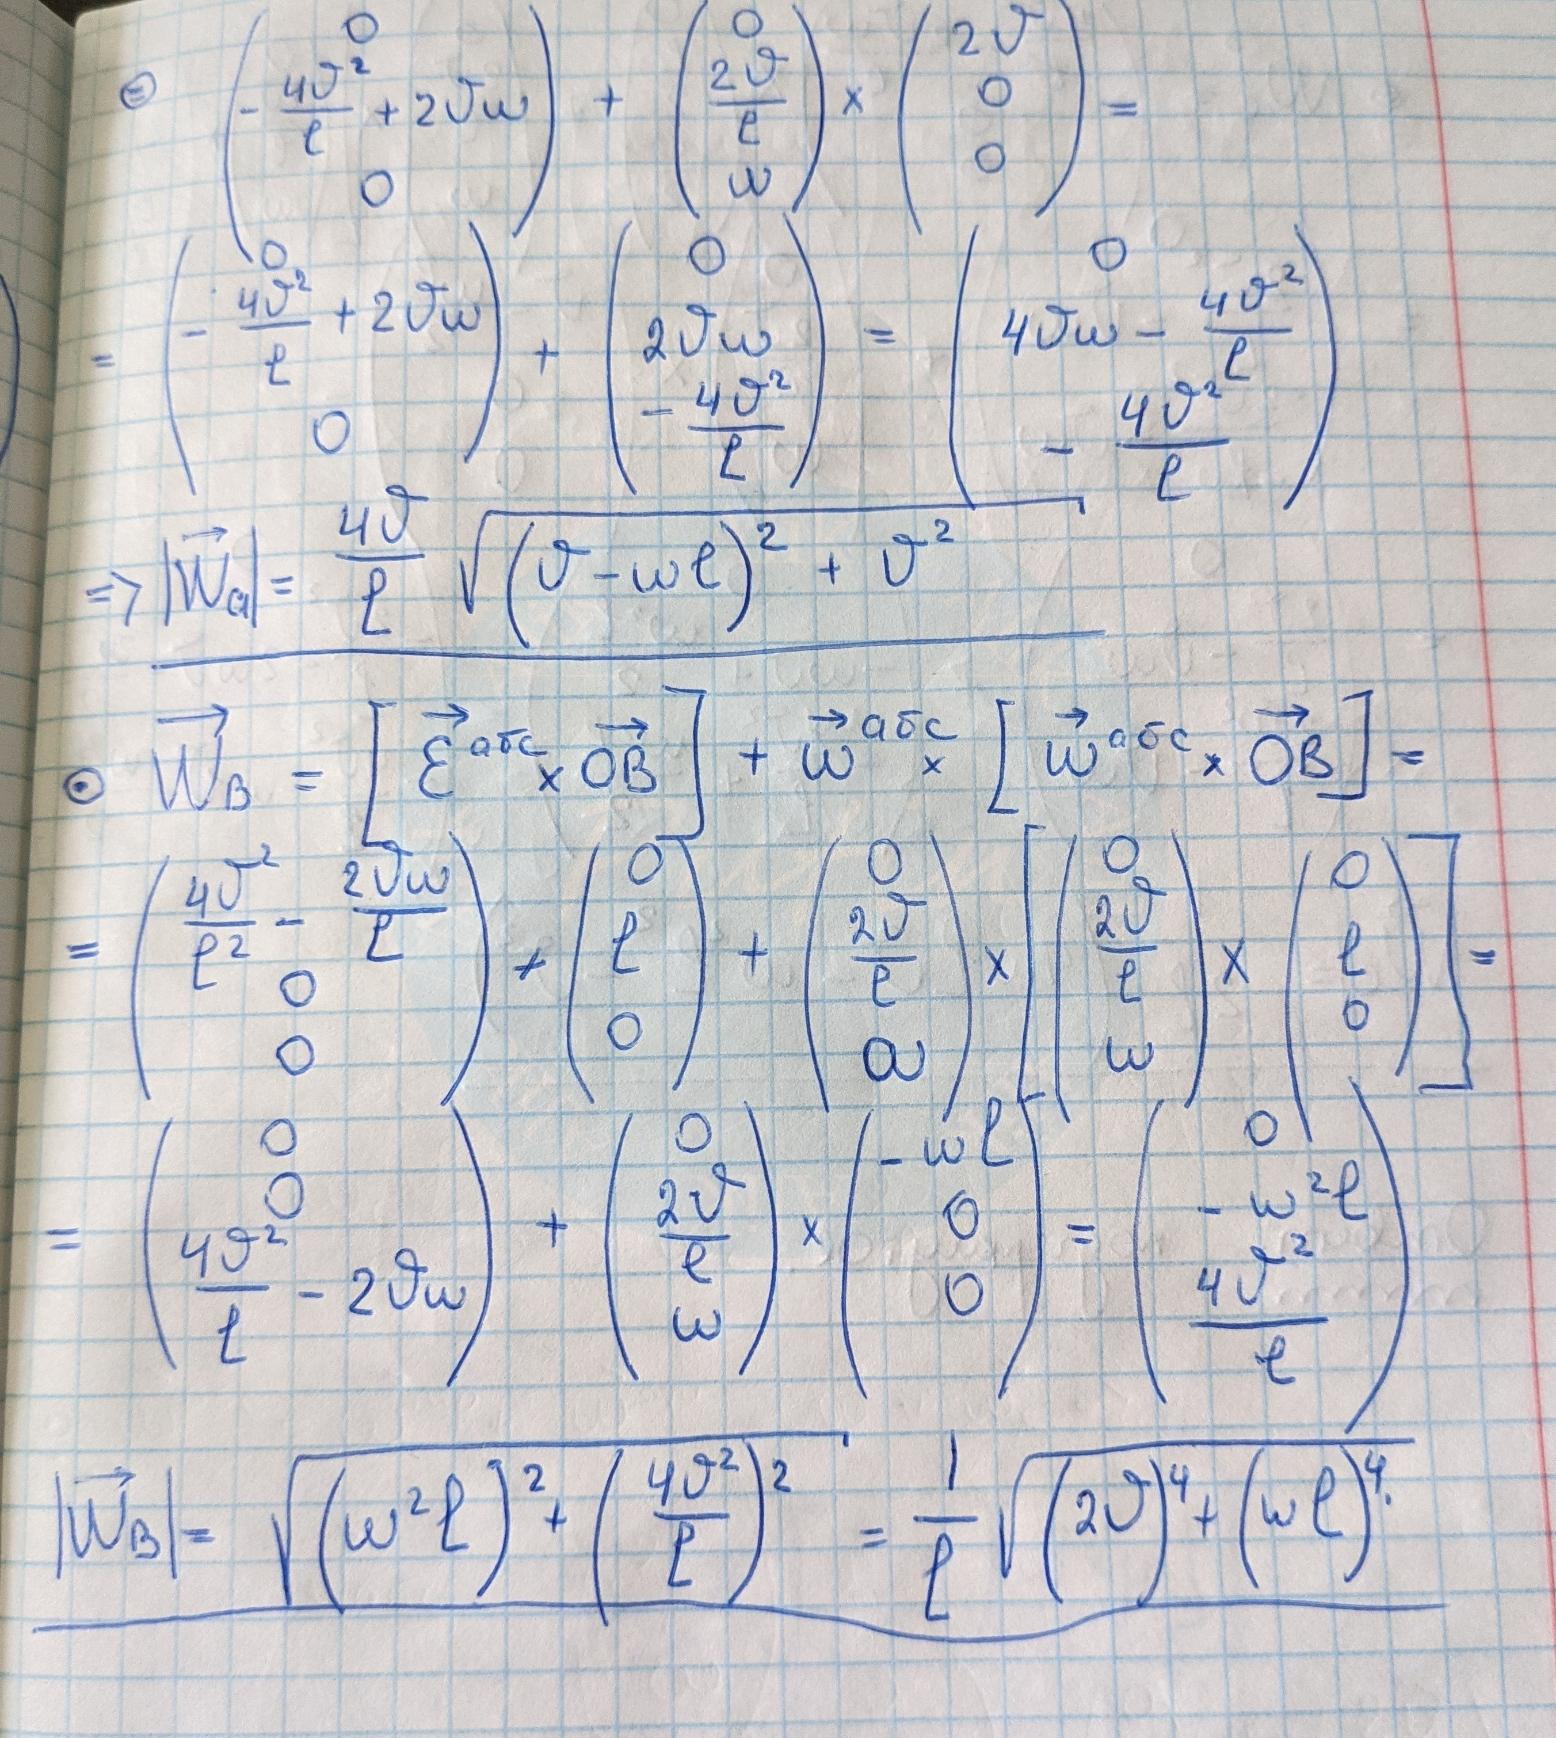 ⊜ (0; -4v²/ℓ + 2vω; 0) + (0; 2v/ℓ; ω) × (2v; 0; 0) =
= (0; -4v²/ℓ + 2vω; 0) + (0; 2vω; -4v²/ℓ) = (0; 4vω - 4v²/ℓ; -4v²/ℓ)
=> |W⃗a| = 4v/ℓ √((v - ωℓ)² + v²)
⊙ W⃗B = [ε⃗ абс × OB⃗] + ω⃗ абс × [ω⃗ абс × OB⃗] =
= (4v²/ℓ² - 2vω/ℓ; 0; 0) × (0; ℓ; 0) + (0; 2v/ℓ; ω) × [(0; 2v/ℓ; ω) × (0; ℓ; 0)] =
= (0; 0; 4v²/ℓ - 2vω) + (0; 2v/ℓ; ω) × (-ωℓ; 0; 0) = (0; -ω²ℓ; 4v²/ℓ)
|W⃗B| = √((ω²ℓ)² + (4v²/ℓ)²) = 1/ℓ √((2v)⁴ + (ωℓ)⁴.